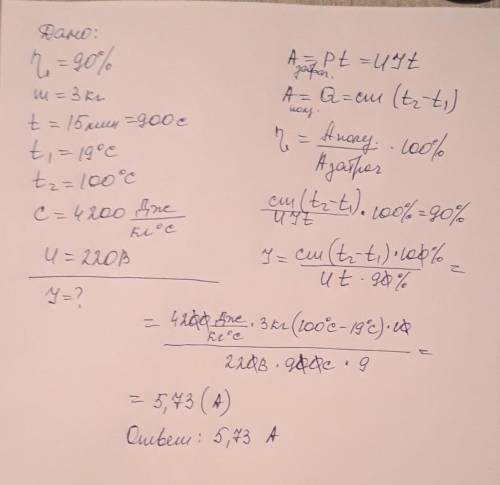 Дано:
η = 90%
m = 3 кг
t = 15 мин = 900 с
t₁ = 19°C
t₂ = 100°C
c = 4200 Дж/кг°C
U = 220 В
I = ?
A затрач. = Pt = UIt
A полу. = Q = cm (t₂ - t₁)
η = A полу. / A затрач · 100%
cm (t₂ - t₁) / UIt · 100% = 90%
I = cm (t₂ - t₁) · 100% / Ut · 90% =
= 4200 Дж/кг°C · 3 кг (100°C - 19°C) · 10 / 220 В · 900 с · 9 =
= 5,73 (A)
Ответ: 5,73 A